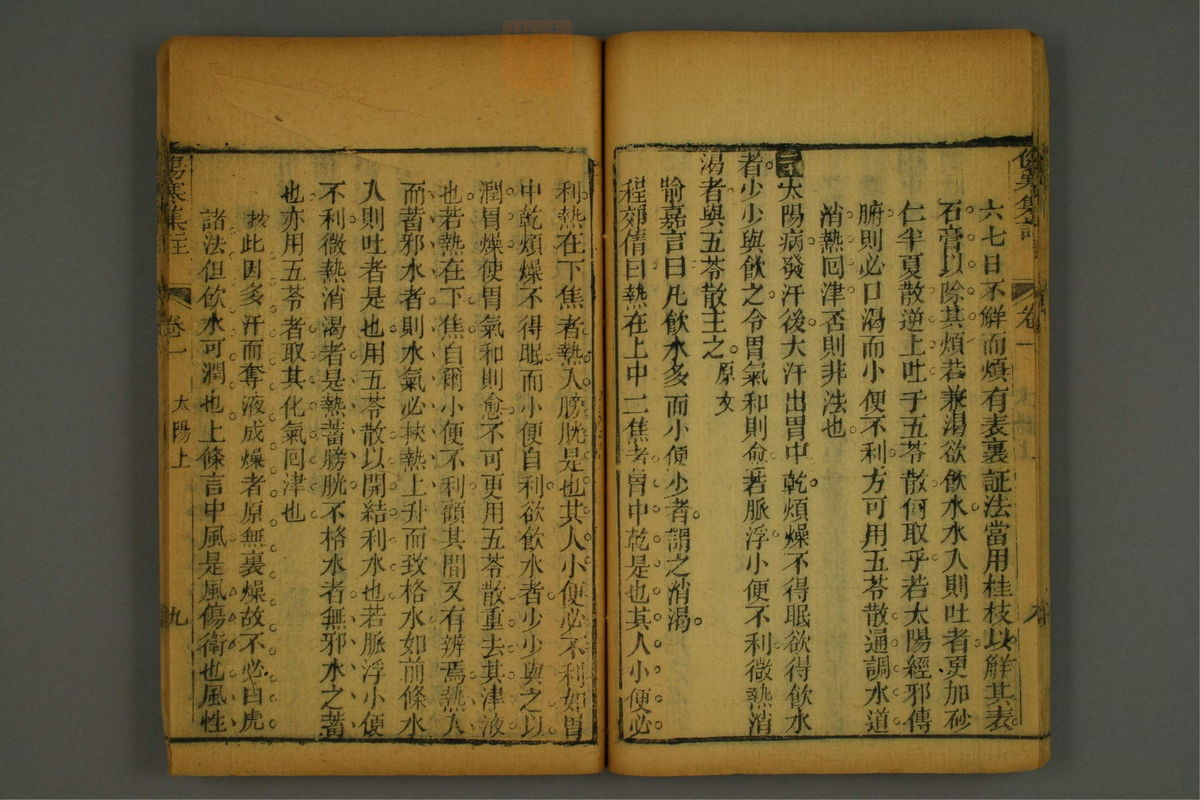 六七日不解而煩有表裏証法當用桂枝以解其表
石膏以除其煩若兼渴欲飲水水入則吐者更加砂
仁半夏散逆上吐于五苓散何取乎若太陽經邪傳
腑則必口渴而小便不利方可用五苓散通調水道
消熱回津否則非法也
太陽病發汗後大汗出胃中乾煩燥不得眠欲得飲水
者少少與飲之令胃氣和則愈若脈浮小便不利微熱消
渴者與五苓散主之 原文
喻嘉言曰凡飲水多而小便少者謂之消渴
程郊倩曰熱在上中二焦者胃中乾是也其人小便必
傷寒集註
卷一
太陽上
九
利熱在下焦者熱入膀胱是也其人小便必不利如胃
中乾煩燥不得眠而小便自利欲飲水者少少與之以
潤胃燥使胃氣和則愈不可更用五苓散重去其津液
也若熱在下焦自爾小便不利顧其間又有辨焉熱入
而蓄邪水者則水氣必挾熱上升而致格水如前條水
入則吐者是也用五苓散以開結利水也若脈浮小便
不利微熱消渴者是熱蓄膀胱不格水者無邪水之蓄
也亦用五苓者取其化氣回津也
按此因多汗而奪液成燥者原無裏燥故不必白虎
諸法但飲水可潤也上條言中風是風傷衛也風性